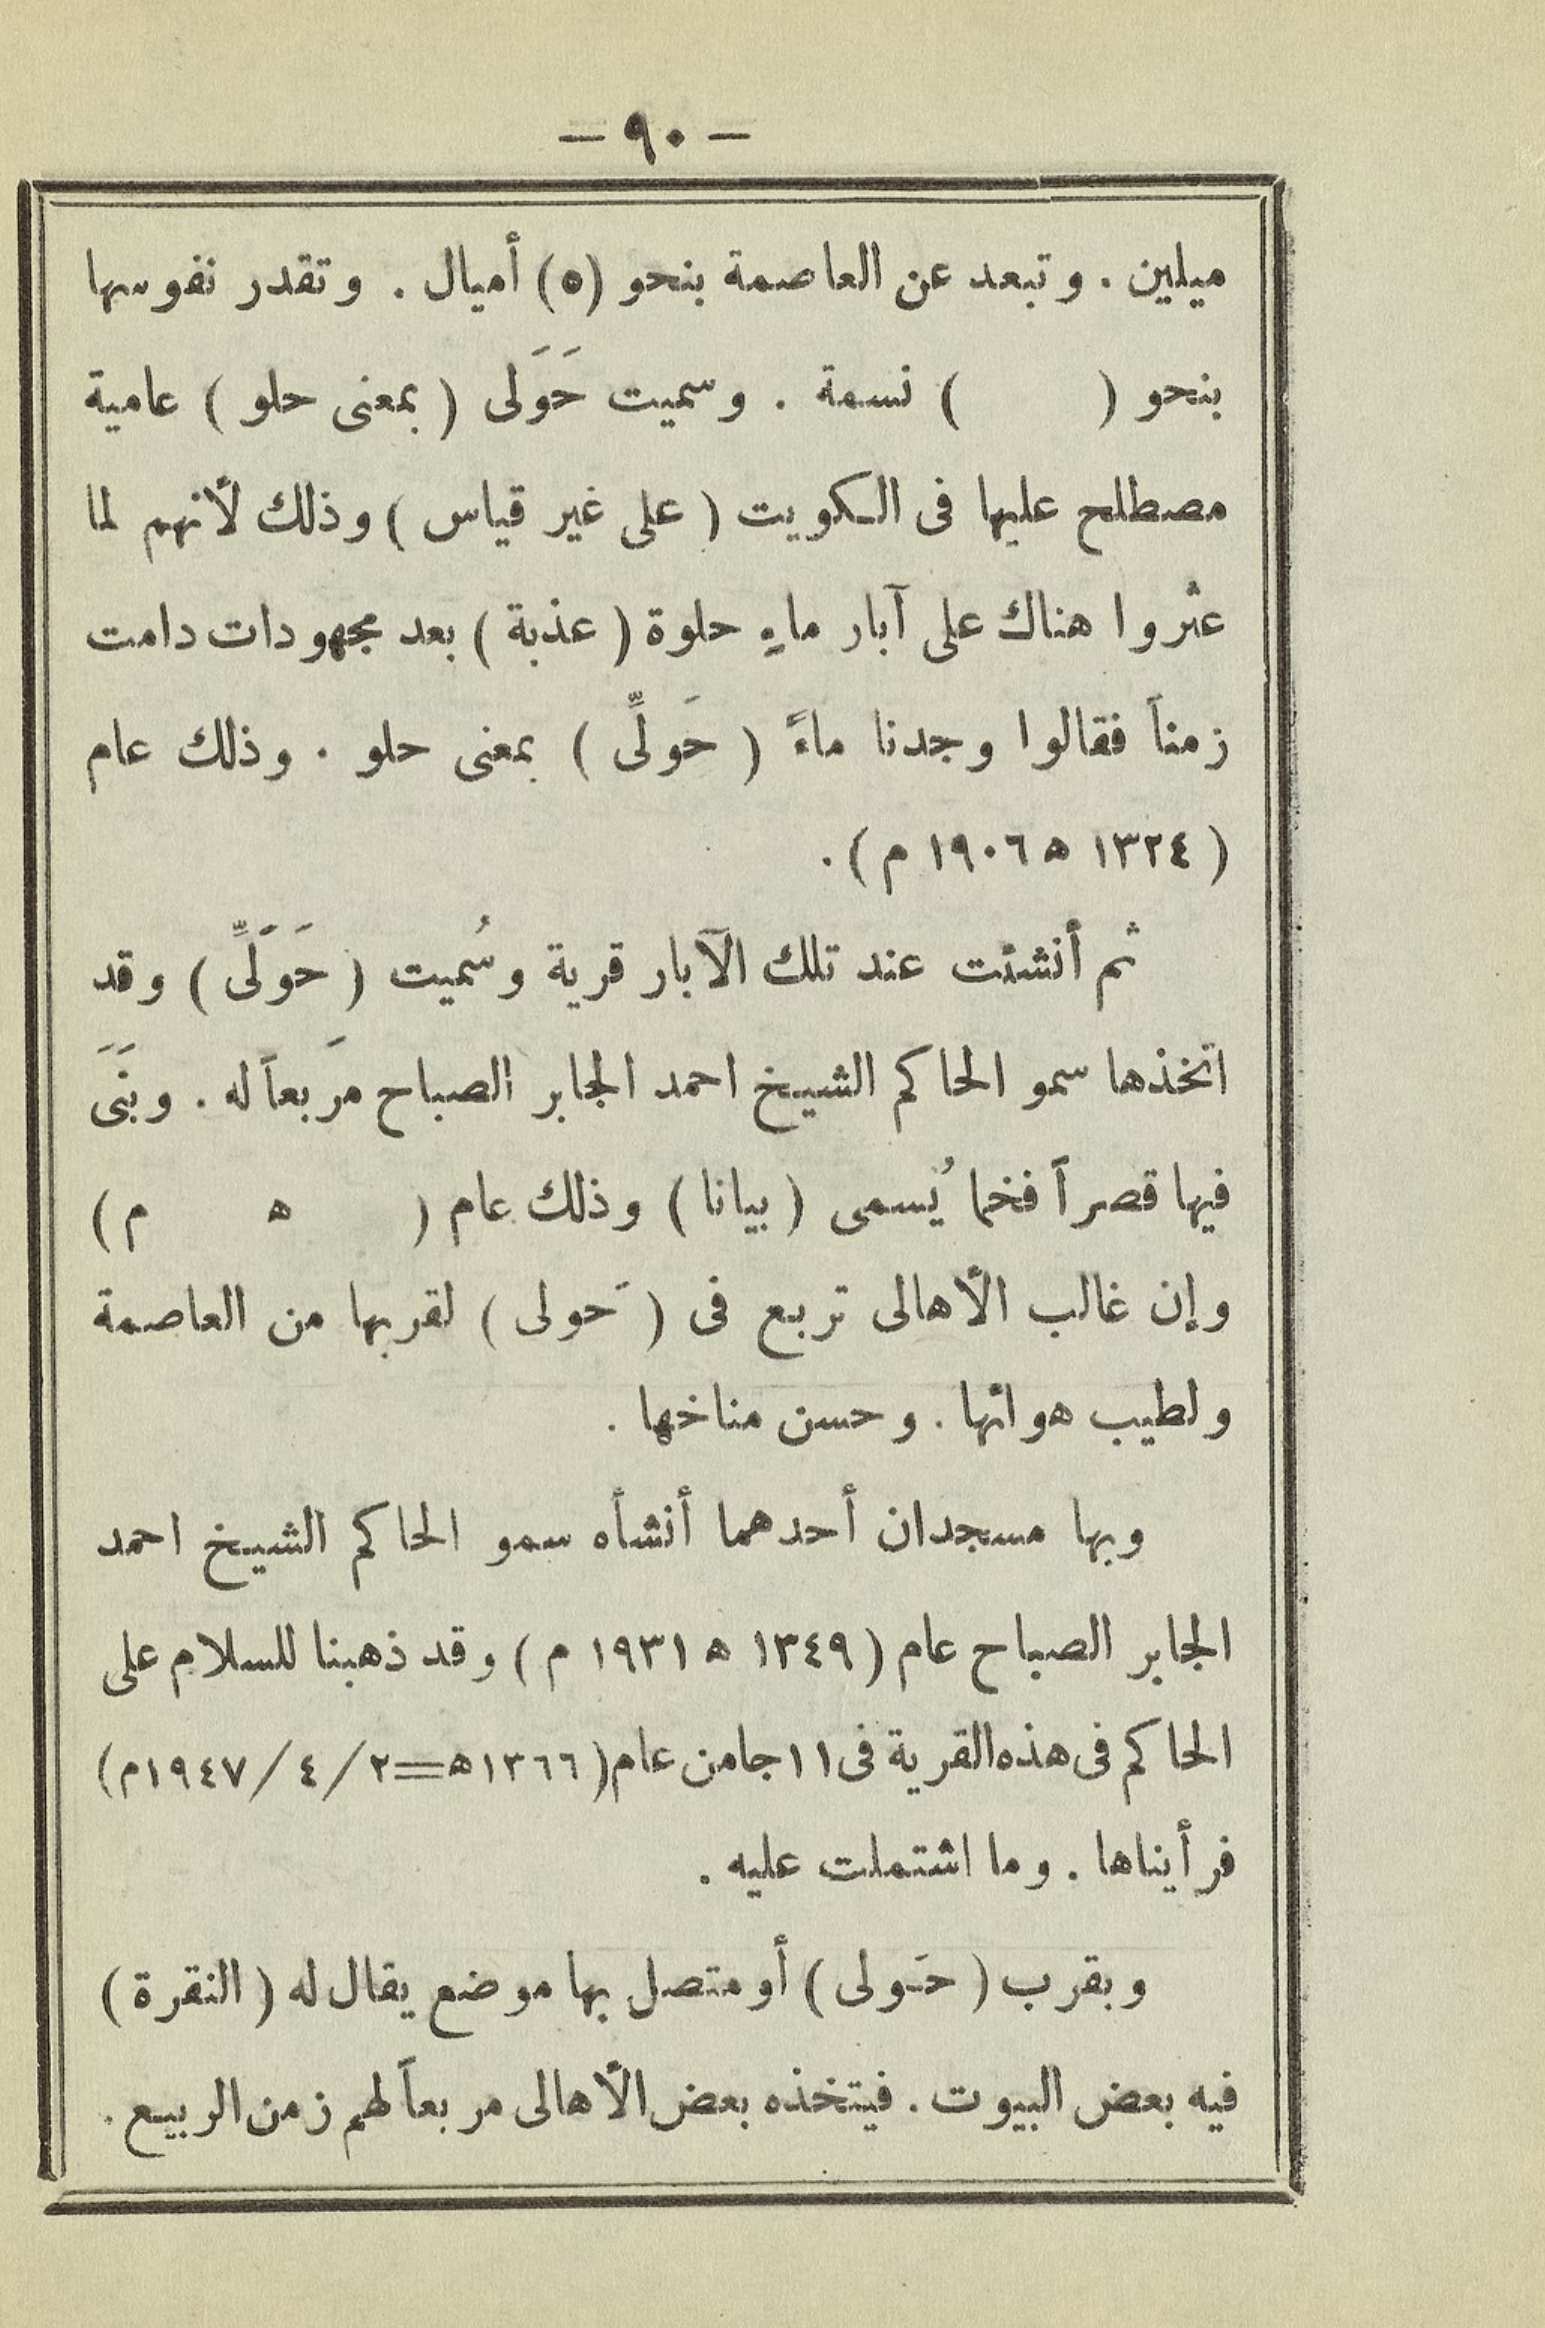 — ٩٠ —
ميلين . وتبعد عن العاصمة بنحو (٥) أميال . وتقدر نفوسها
بنحو (      ) نسمة . وسميت حَوَلى ( بمعنى حلو ) عامية
مصطلح عليها فى الكويت ( على غير قياس ) وذلك لأنهم لما
عثروا هناك على آبار ماءٍ حلوة ( عذبة ) بعد مجهودات دامت
زمناً فقالوا وجدنا ماءً ( حَولِّى ) بمعنى حلو . وذلك عام
( ١٣٢٤ ه ١٩٠٦ م ) .
ثم أنشئت عند تلك الآبار قرية وسُميت ( حَوَلِّى ) وقد
اتخذها سمو الحاكم الشيخ احمد الجابر الصباح مَربعاً له . وبَنَى
فيها قصراً فخما يُسمى ( بيانا ) وذلك عام (      ه      م )
وإن غالب الأهالى تربع فى ( حَولى ) لقربها من العاصمة
ولطيب هوائها . وحسن مناخها .
وبها مسجدان أحدهما أنشأه سمو الحاكم الشيخ احمد
الجابر الصباح عام ( ١٣٤٩ ه ١٩٣١ م ) وقد ذهبنا للسلام على
الحاكم فى هذه القرية فى ١١ جا من عام ( ١٣٦٦ه=٢/٤/١٩٤٧م)
فرأيناها . وما اشتملت عليه .
وبقرب ( حَولى ) أو متصل بها موضع يقال له ( النقرة )
فيه بعض البيوت . فيتخذه بعض الأهالى مربعاً لهم زمن الربيع .